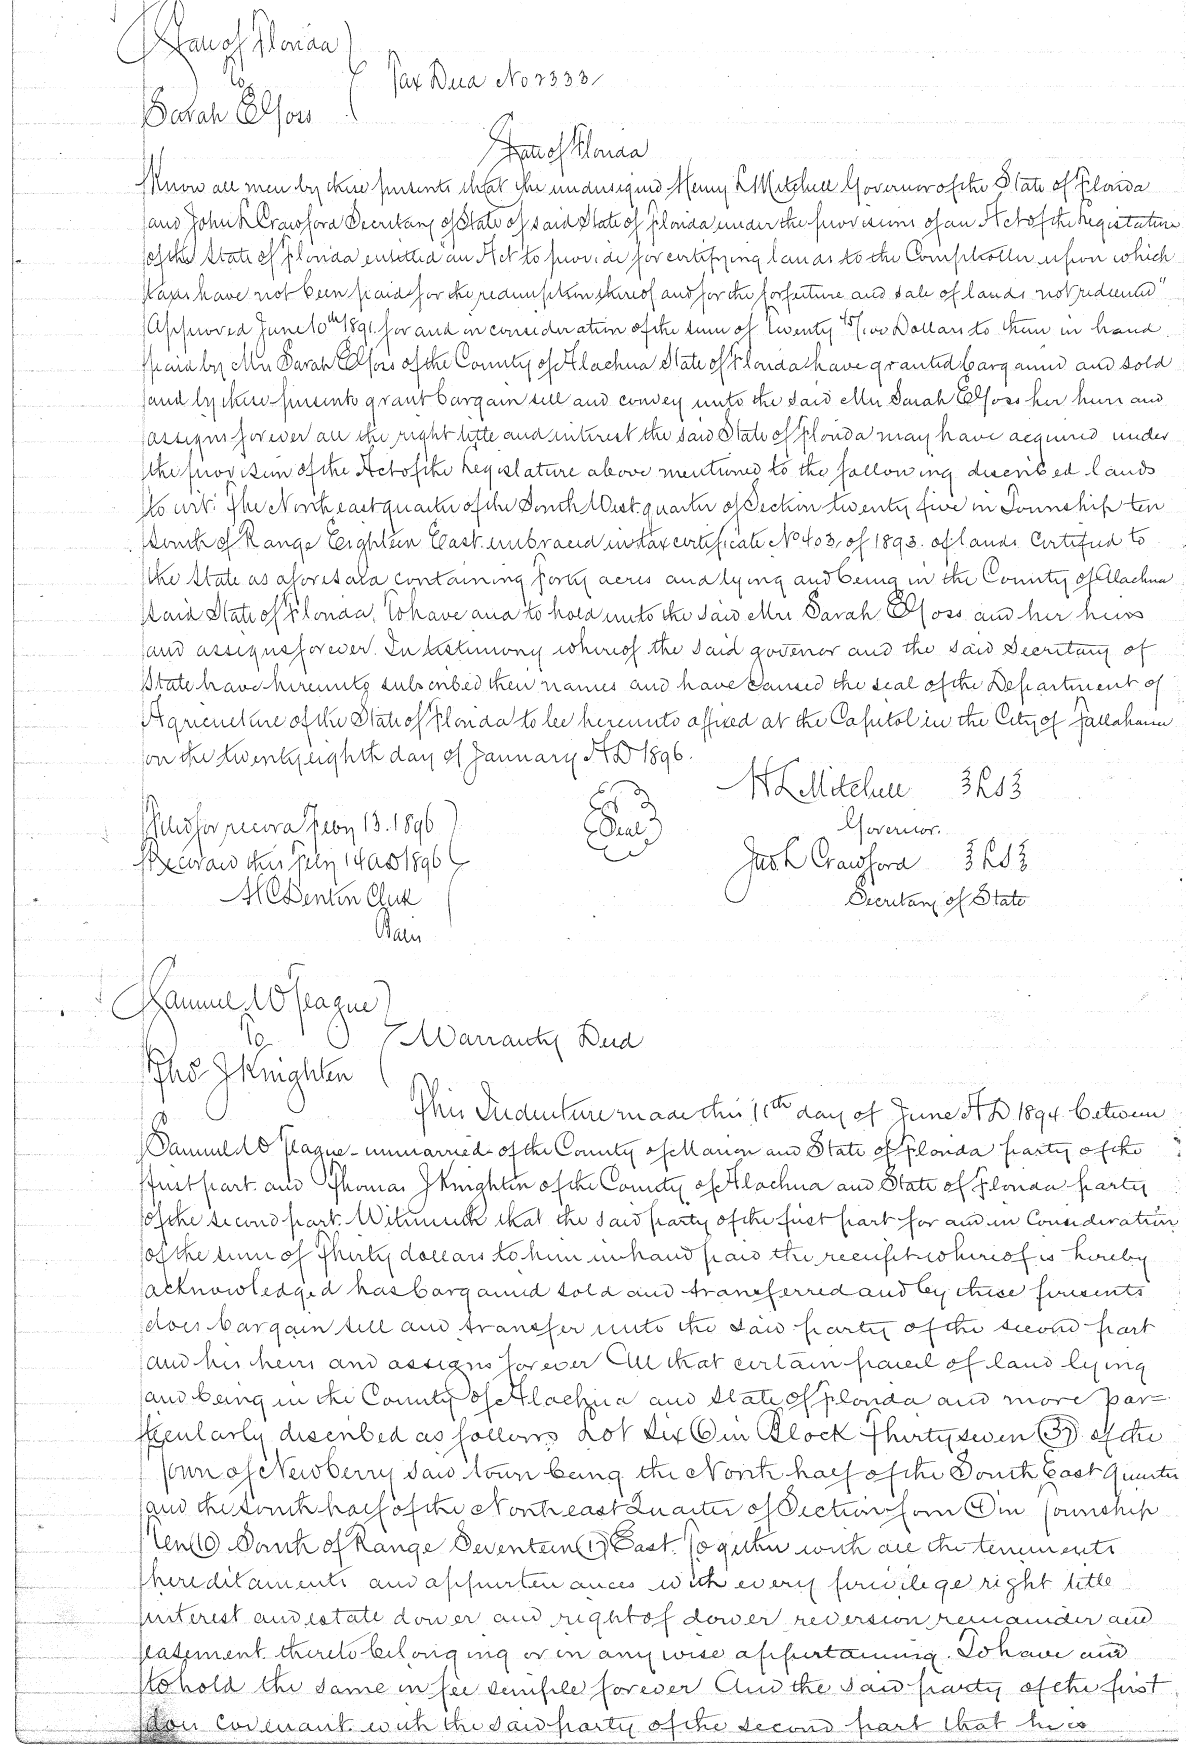 State of Florida
To
Sarah E Goss
Tax Deed No 2333
State of Florida
Know all men by these presents that the undersigned Henry L Mitchell Governor of the State of Florida
and John L Crawford Secretary of State of said State of Florida under the provisions of an Act of the Legislature
of the State of Florida entitled an Act to provide for certifying lands to the Comptroller upon which
taxes have not been paid for the redemption thereof and for the forfeiture and sale of lands not redeemed"
Approved June 10th 1891. for and in consideration of the sum of Twenty /100 Dollars to them in hand
paid by Mrs Sarah E Goss of the County of Alachua State of Florida have granted bargained and sold
and by these presents grant bargain sell and convey unto the said Mrs Sarah E Goss her heirs and
assigns forever all the right title and interest the said State of Florida may have acquired under
the provision of the Act of the Legislature above mentioned to the following described lands
to wit: The North east quarter of the South West quarter of Section twenty five in Township ten
South of Range Eighteen East embraced in tax certificate No 403, of 1893. of lands Certified to
the State as aforesaid containing forty acres and lying and being in the County of Alachua
said State of Florida, To have and to hold unto the said Mrs Sarah E Goss and her heirs
and assigns forever. In testimony whereof the said govenor and the said Secretary of
State have hereunto subscribed their names and have caused the seal of the Department of
Agriculture of the State of Florida to be hereunto affixed at the Capitol in the City of Tallahassee
on the twenty eighth day of January A D 1896.
H L Mitchell {LS}
Governor.
Seal
Jno L Crawford {LS}
Secretary of State
Filed for record Feby 13. 1896
Recorded this Feby 14 AD 1896
H C Denton Clerk
Samuel W Teague
To
Thos J Knighten
Warranty Deed
This Indenture made this 11th day of June A D 1894. between
Samuel W Teague - unmarried - of the County of Marion and State of Florida party of the
first part. and Thomas J Knighten of the County of Alachua and State of Florida party
of the second part. Witnesseth that the said party of the first part for and in Consideration
of the sum of Thirty dollars to him in hand paid the receipt whereof is hereby
acknowledged has bargained sold and transferred and by these presents
does bargain sell and transfer unto the said party of the second part
and his heirs and assigns forever All that certain parcel of land lying
and being in the County of Alachua and State of Florida and more par=
ticularly described as follows Lot Six (6) in Block Thirty seven (37) of the
Town of Newberry said town being the North half of the South East Quarter
and the south half of the North east Quarter of Section four (4) in Township
Ten (10) South of Range Seventeen (17) East. Together with all the tenements
hereditaments and appurtenances with every privilege right title
interest and estate dower and right of dower reversion remainder and
easement thereto belonging or in any wise appertaining. To have and
to hold the same in fee simple forever And the said party of the first
does covenant with the said party of the second part that he is